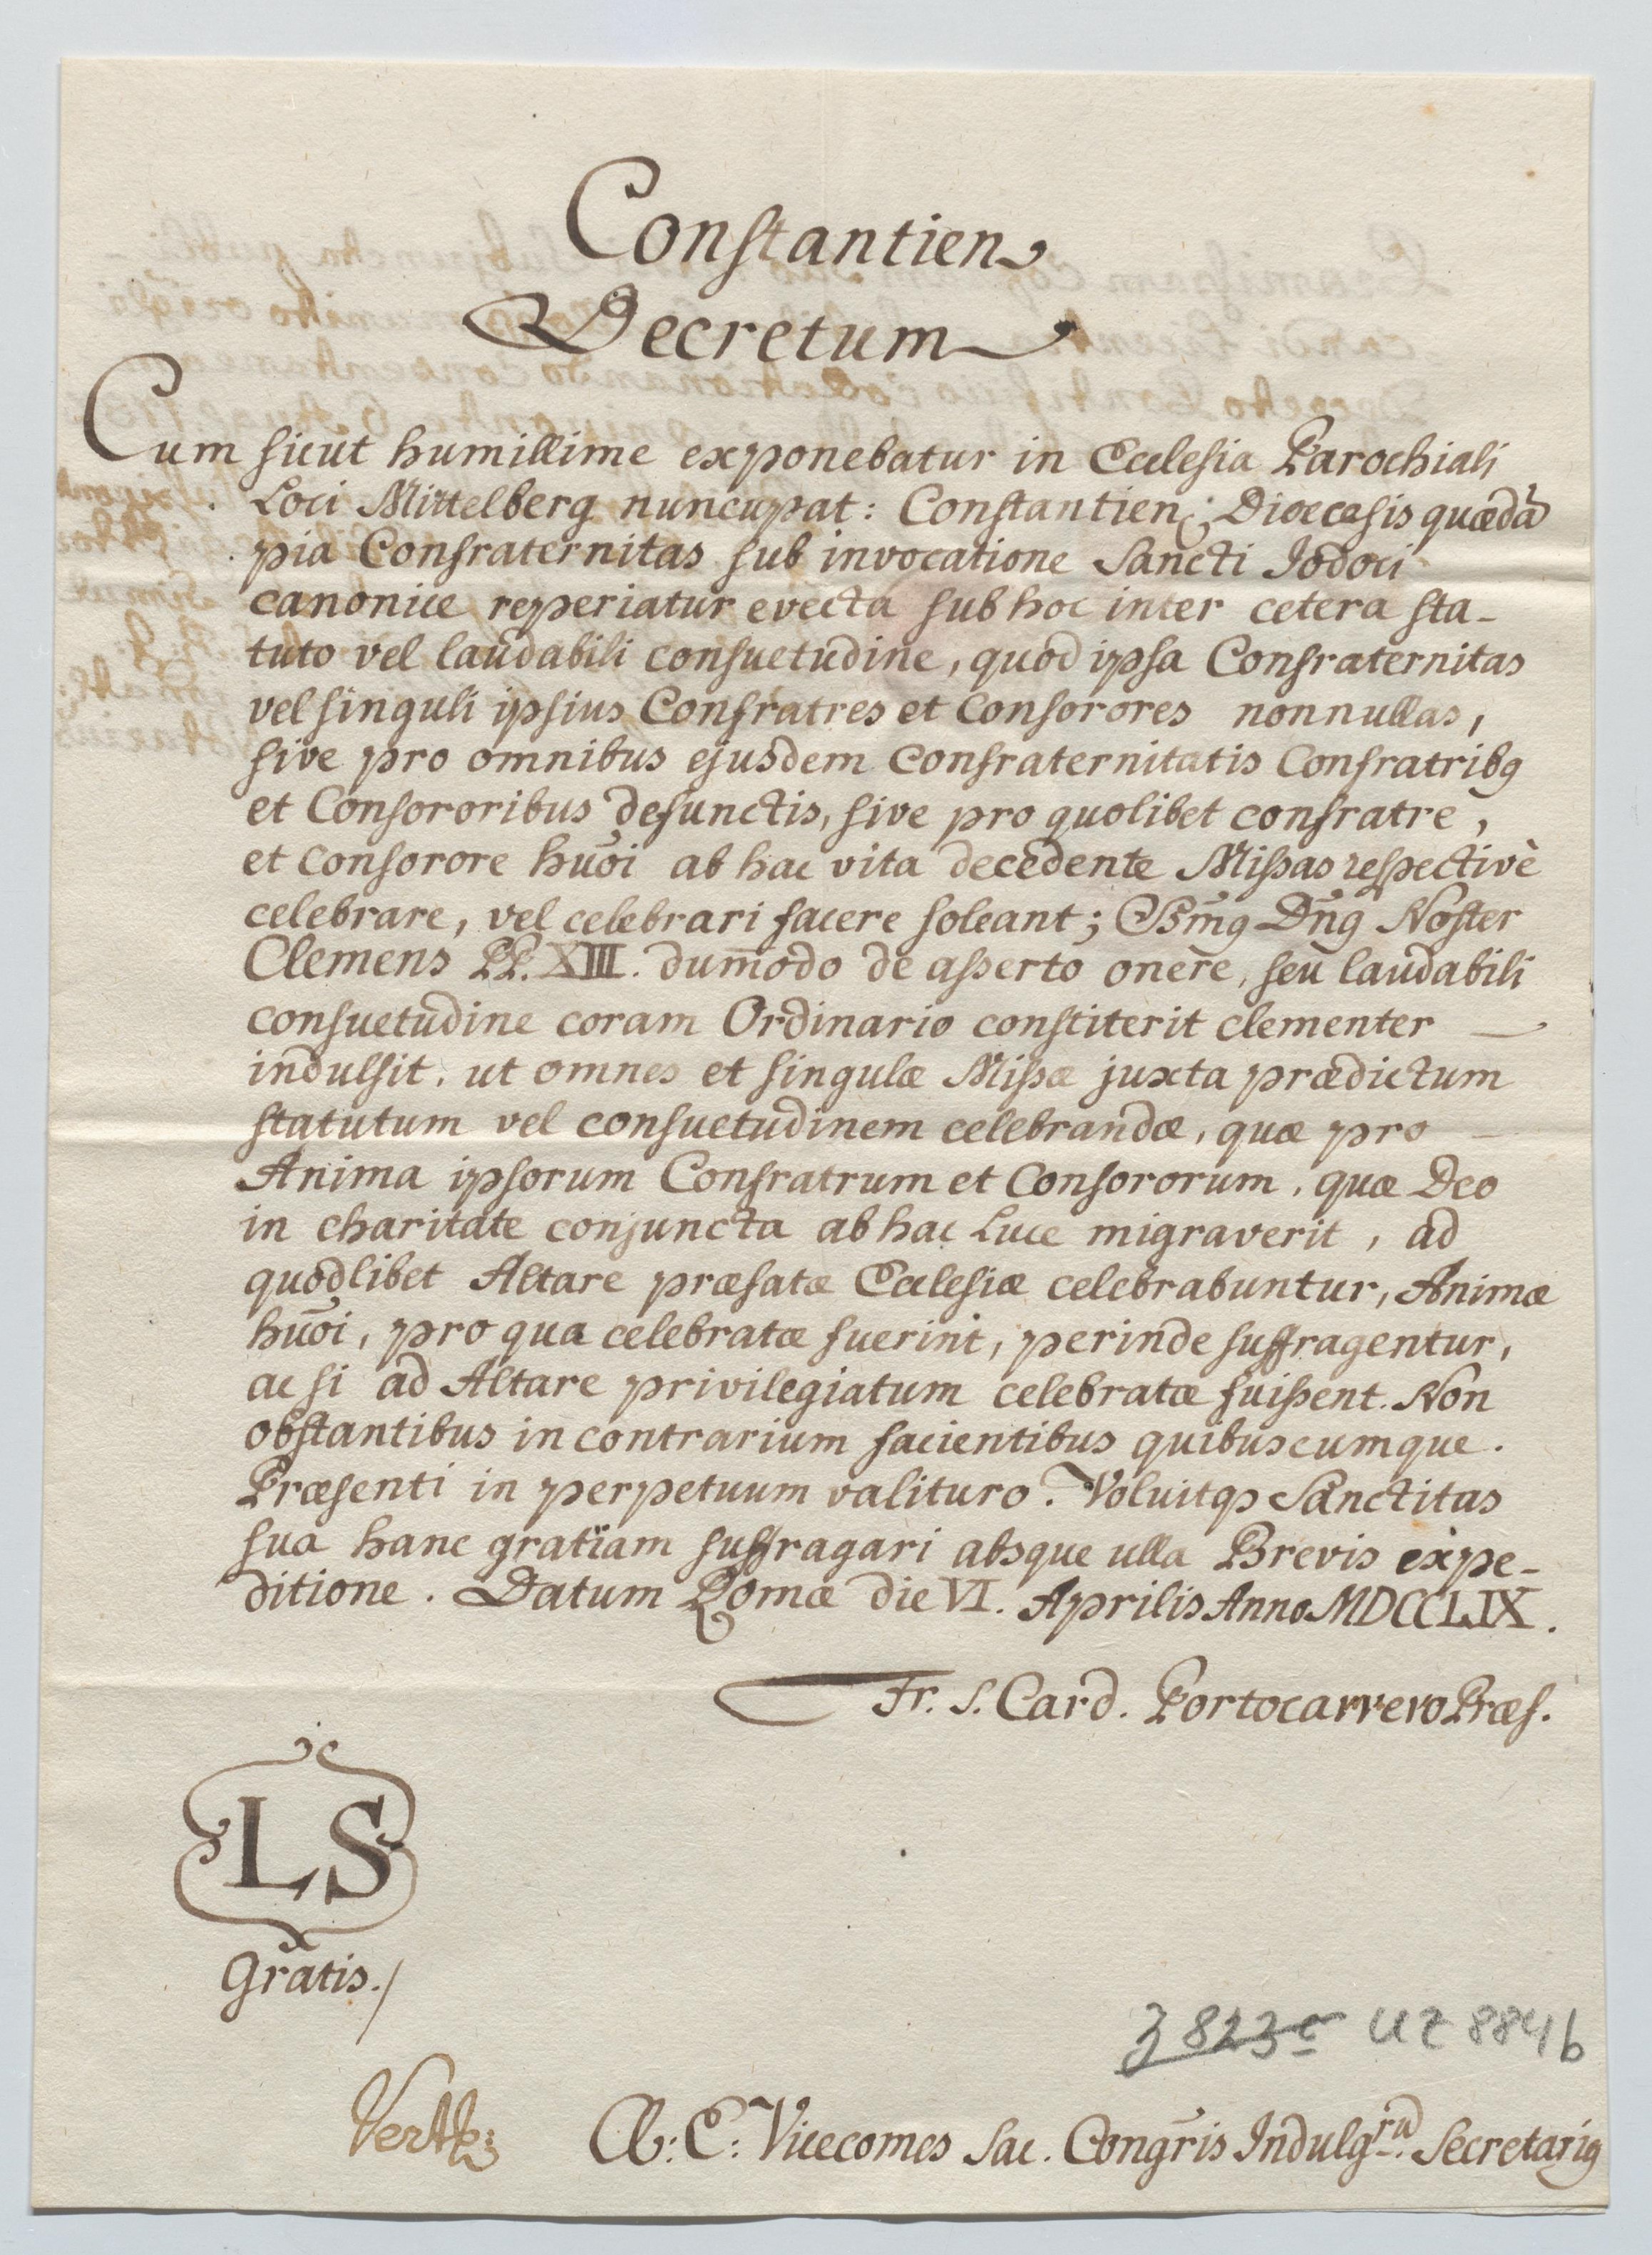 Constantien
Decretum
Cum sicut humillime exponebatur in Ecclesia Parochiali
Loci Mittelberg nuncupat: Constantien: Dioecesis quædā
pia Confraternitas sub invocatione Sancti Jodoci
canonice reperiatur erecta sub hoc inter cetera sta-
tuto vel laudabili consuetudine, quod ipsa Confraternitas
vel singuli ipsius Confratres et Consorores nonnullas,
sive pro omnibus ejusdem Confraternitatis Confratribq
et Consororibus defunctis, sive pro quolibet confratre,
et consorore hūōi ab hac vita decedente Missas respectivè
celebrare, vel celebrari facere soleant; SSm̄q Dn̄q Noster
Clemens PP. XIII. dum̄odo de asserto onere, seu laudabili
consuetudine coram Ordinario constiterit clementer
indulsit, ut omnes et singulæ Missæ juxta prædictum
statutum vel consuetudinem celebrandæ, quæ pro
Anima ipsorum Confratrum et Consororum, quæ Deo
in charitate conjuncta ab hac Luce migraverit, ad
quodlibet Altare præfatæ Ecclesiæ celebrabuntur, Animæ
hūōi, pro qua celebratæ fuerint, perinde suffragentur,
ac si ad Altare privilegiatum celebratæ fuissent. Non
obstantibus in contrarium facientibus quibuscumque.
Præsenti in perpetuum valituro. Voluitqȝ Sanctitas
sua hanc gratiam suffragari absque ulla Brevis expe-
ditione. Datum Romæ die VI. Aprilis Anno MDCCLIX.
Fr. S. Card. Portocarrero Præs.
LS
Gratis./
3 823 c UZ 8841b
Verte:
A: E: Vicecomes Sac. Congr̄is Indulgrū. Secretariq